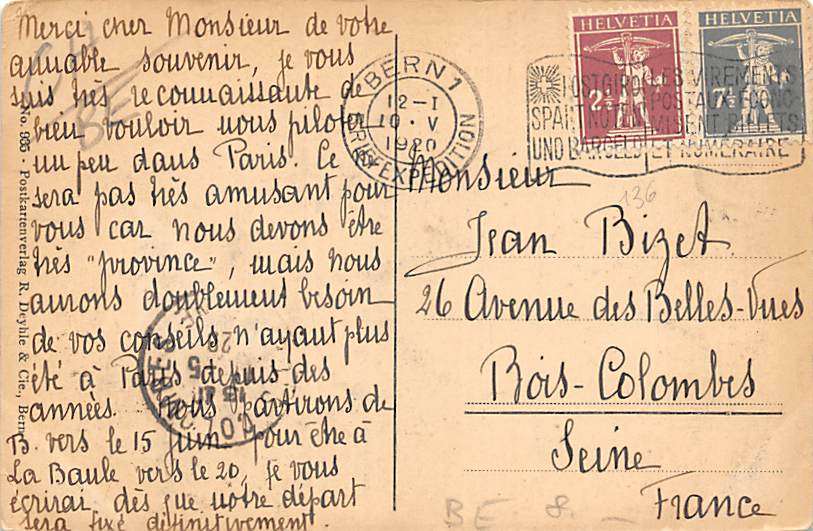 Merci cher Monsieur de votre
aimable souvenir, je vous
suis très reconnaissante de
bien vouloir nous piloter
un peu dans Paris. Ce
sera pas très amusant pour
vous car nous devons être
très "province", mais nous
aurons doublement besoin
de vos conseils n'ayant plus
été à Paris depuis des
années. Nous partirons de
B. vers le 15 juin pour être à
La Baule vers le 20, je vous
écrirai dès que notre départ
sera fixé définitivement.
No. 935 - Postkartenverlag R. Deyhle & Cie., Bern
BERN 1
12-I
10.V
BRIEFEXPEDITION
HELVETIA
2½
HELVETIA
7½
POSTGIRO
SPART NOTEN
UND BARGELD
LES VIREMENTS
POSTAUX ÉCONO-
MISENT BILLETS
ET NUMÉRAIRE
136
Monsieur
Jean Bizet
26 Avenue des Belles-Vues
Bois-Colombes
Seine
France
BE 8.-